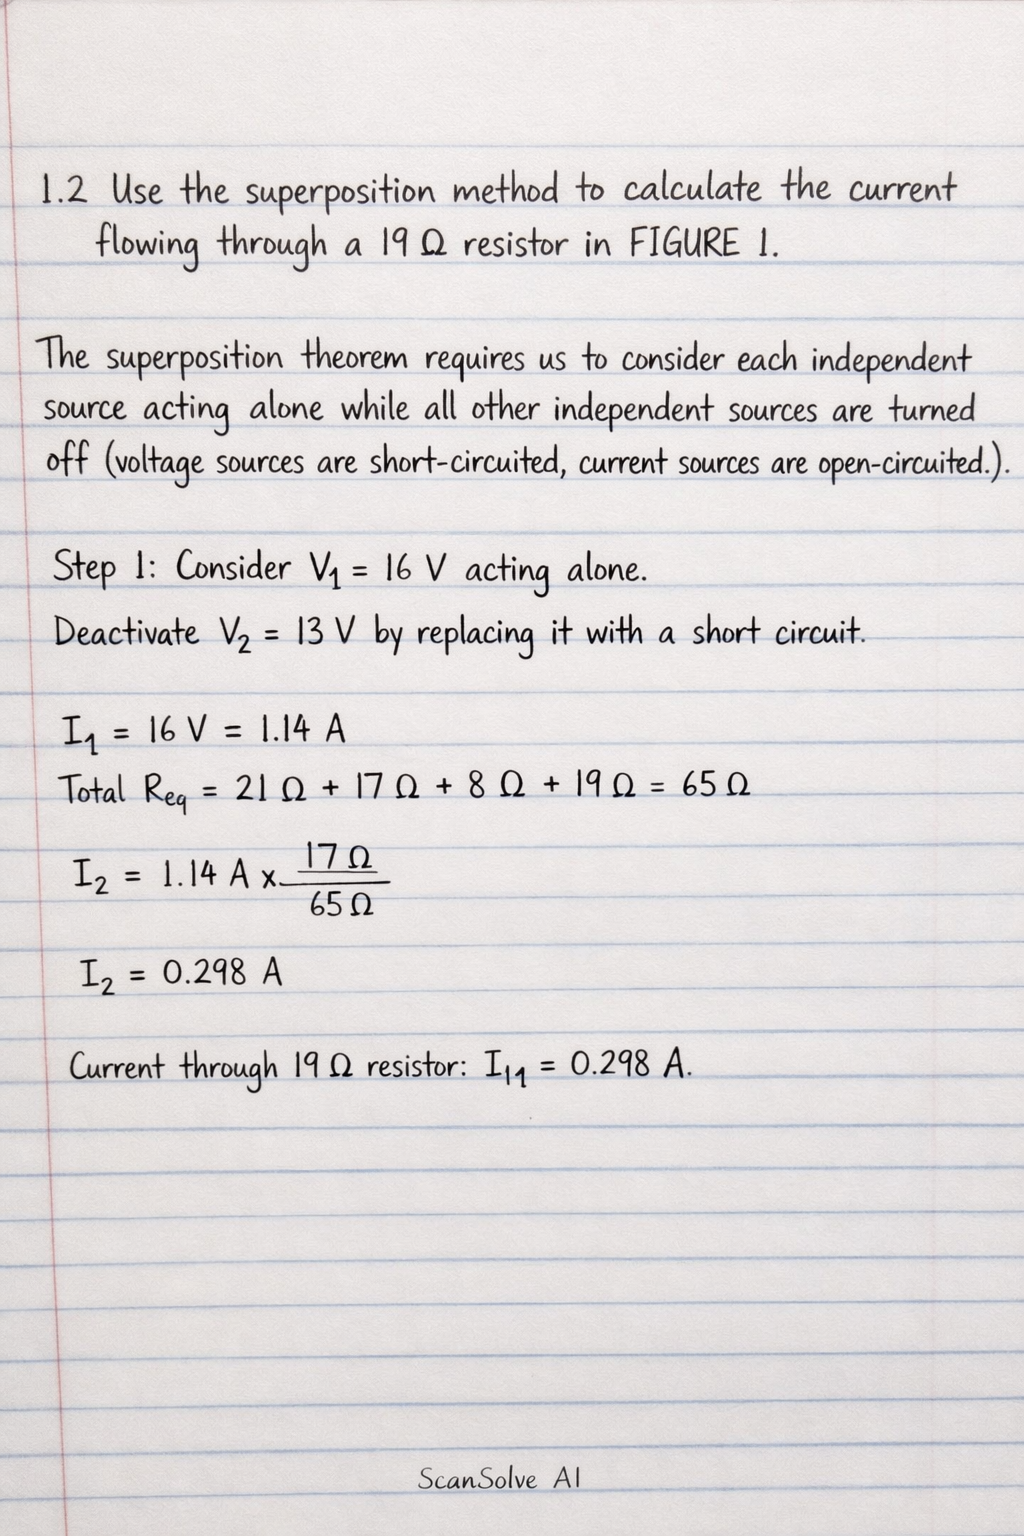 1.2 Use the superposition method to calculate the current
flowing through a 19 Ω resistor in FIGURE 1.
The superposition theorem requires us to consider each independent
source acting alone while all other independent sources are turned
off (voltage sources are short-circuited, current sources are open-circuited.).
Step 1: Consider V₁ = 16 V acting alone.
Deactivate V₂ = 13 V by replacing it with a short circuit.
I₁ = 16 V = 1.14 A
Total Req = 21 Ω + 17 Ω + 8 Ω + 19 Ω = 65 Ω
I₂ = 1.14 A x 17 Ω / 65 Ω
I₂ = 0.298 A
Current through 19 Ω resistor: I₁₁ = 0.298 A.
ScanSolve AI